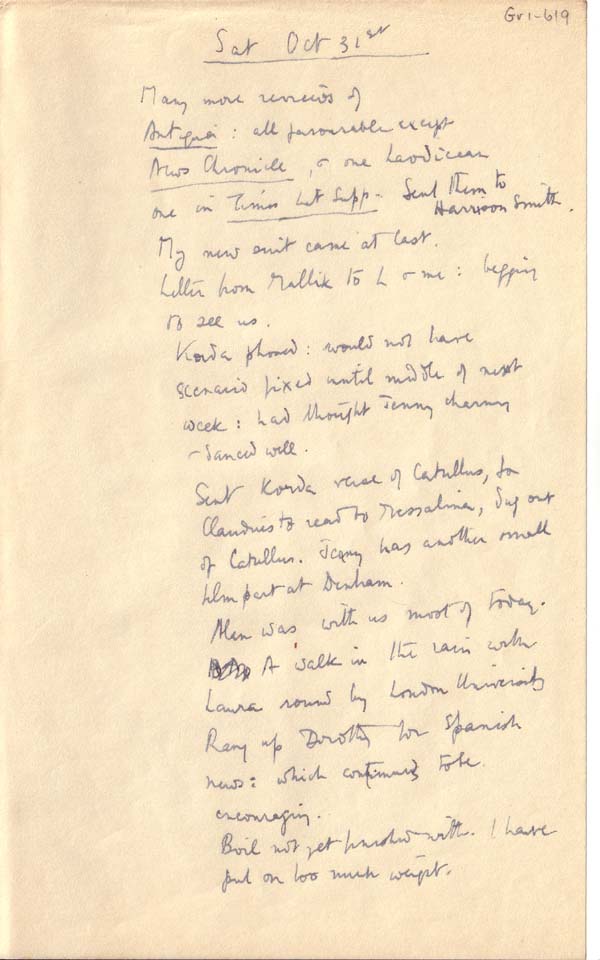 Gv1-619
Sat Oct 31st
Many more reviews of
Antigua : all favourable except
News Chronicle, & one Laodicean
one in Times Lit Supp. Sent them to
Harrison Smith.
My new suit came at last.
Letter from Mallik to L & me : begging
to see us.
Korda phoned : would not have
scenario fixed until middle of next
week : had thought Jenny charming
& danced well.
Sent Korda verse of Catullus, for
Claudius to read to Messalina, dug out
of Catullus. Jenny has another small
film part at Denham.
Alan was with us most of today.
A walk in the rain with
Laura round by London University
Rang up Dorothy for Spanish
news : which continues to be
encouraging.
Boil not yet finished with. I have
put on too much weight.